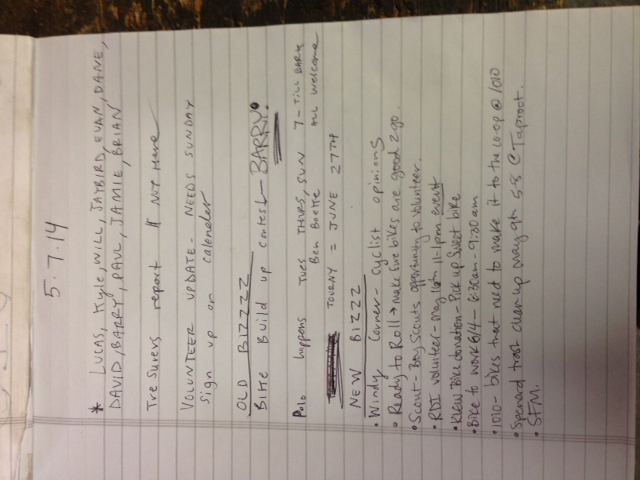 5.7.14
* LUCAS, Kyle, WILL, JAYBIRD, EVAN, DANE,
DAVID, BARRY, PAUL, JAMIE, BRIAN
Tresurers report // Not Here
VOLUNTEER UPDATE - NEEDS SUNDAY
Sign up on calender
OLD BIZZZZ
BIKE Build up contest - BARRY.
Polo happens TUES THURS, SUN 7 - TILL DARK
Ben Boeke ALL Welcome
TOURNY = JUNE 27TH
NEW BIZZZ
• Windy Corner - Cyclist opinions
• Ready to Roll → make sure bikes are good 2 go.
• Scout - Boy Scouts opportunity to volunteer.
• volunteer - May 16th 11-1pm event
• Bike donation - Pick up Sweet bike
• Bike to work 6/4 - 6:30am - 9:30am
• 1010 - bikes that need to make it to the co-op @ 1010
• Spenard trash clean-up May 9th 5-8 @ Taproot.
• SFM.